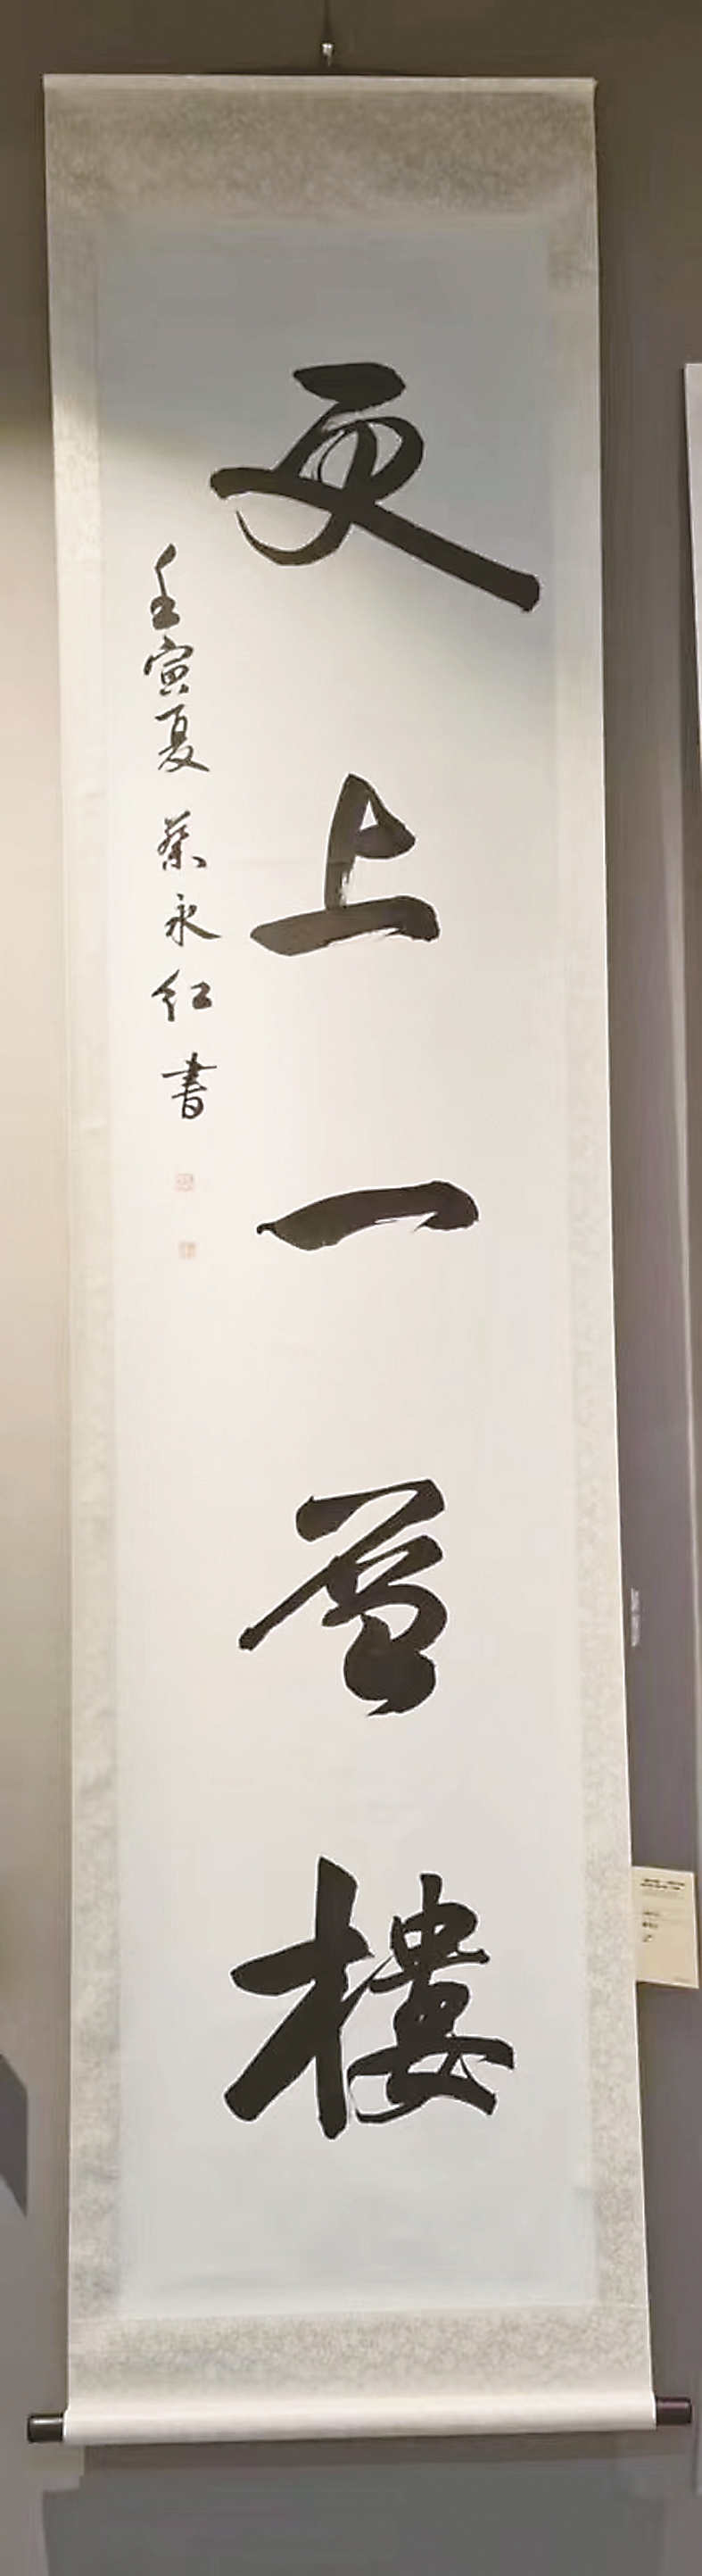 更上一層樓
壬寅夏 蔡永红書